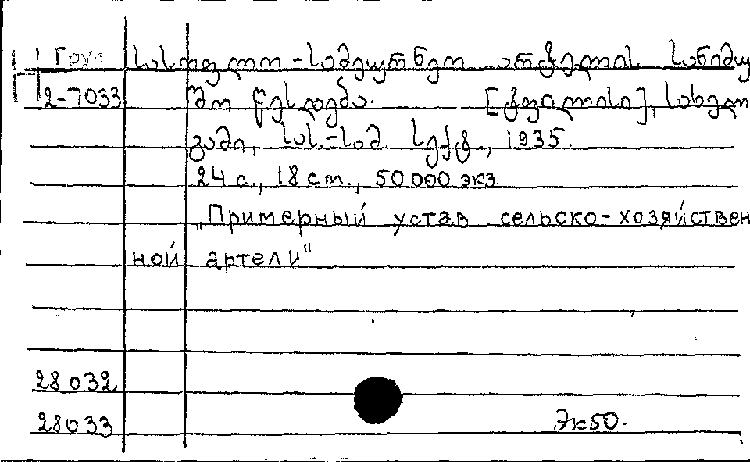 Груз სასოფლო-სამეურნეო არტელის სანიმუ
2-7033 შო წესდება. [ტფილისი], სახელ
გამი, სას.-სამ. სექტ., 1935.
24 с., 18 cm., 50 000 экз
„Примерный устав сельско-хозяйствен
ной артели"
28032
28033 Эк50.